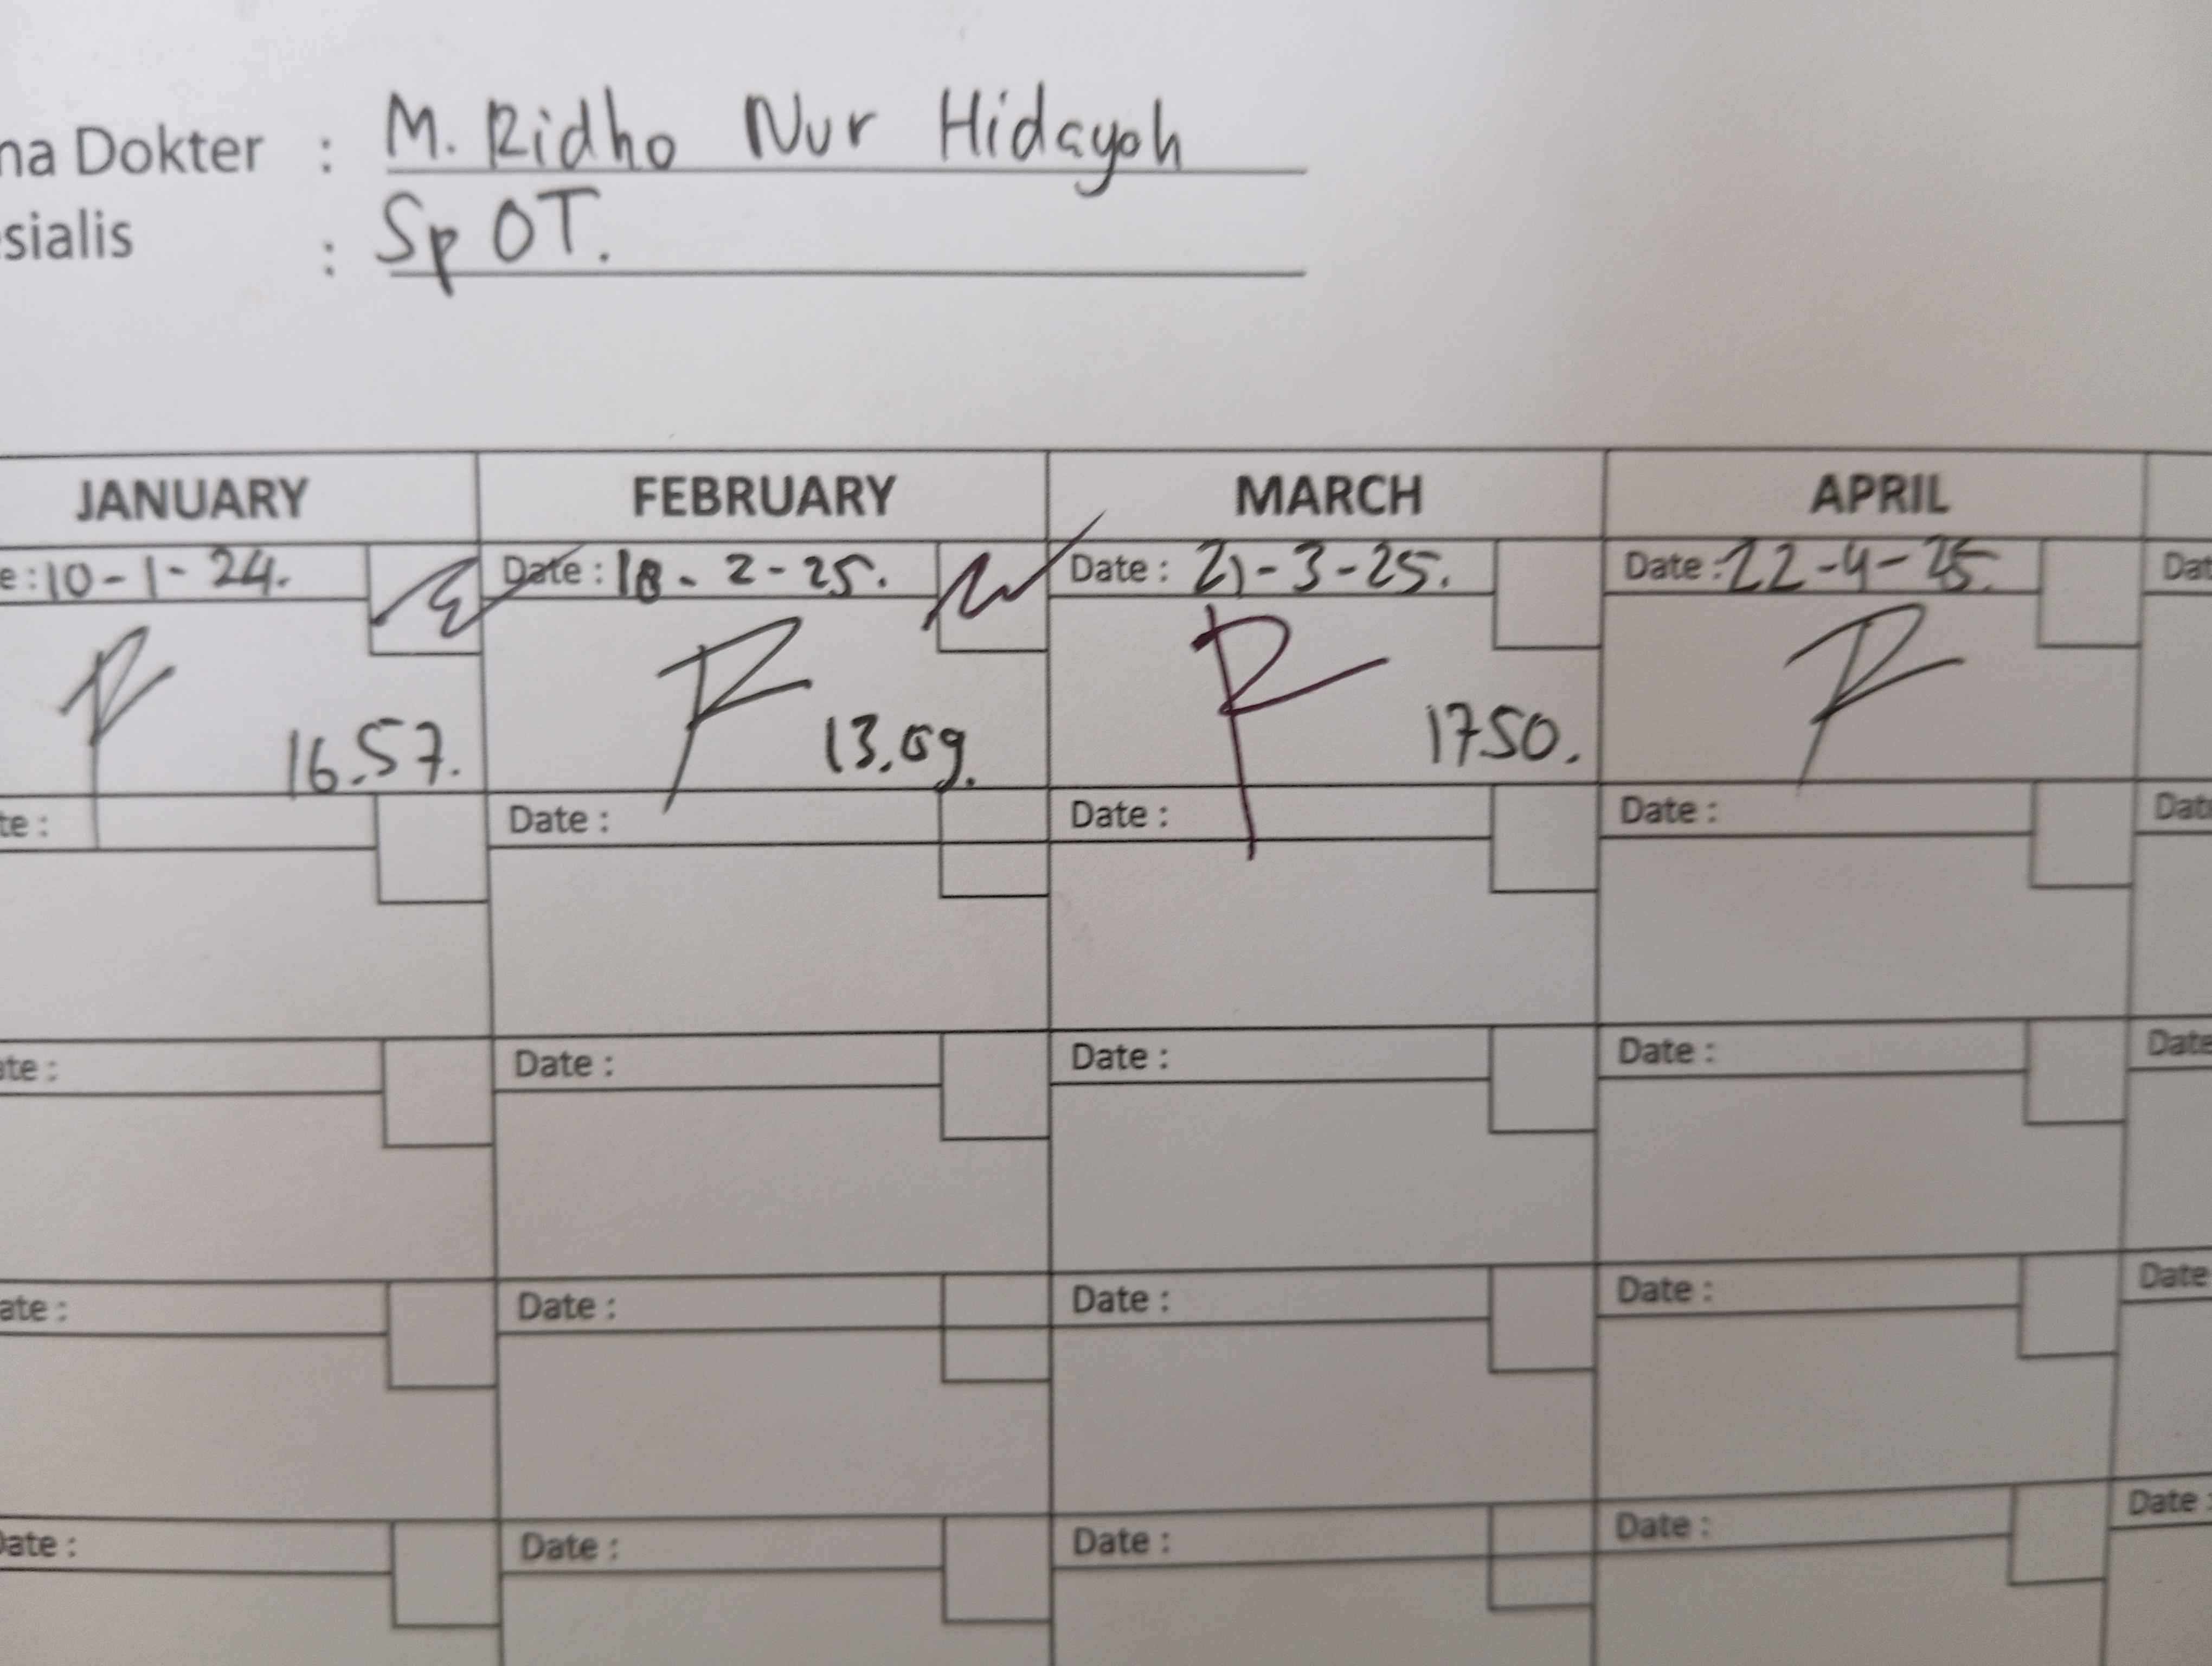 ma Dokter : M. Ridho Nur Hidayah
esialis : Sp OT.
JANUARY FEBRUARY MARCH APRIL
e : 10-1-24. Date : 18-2-25. Date : 21-3-25. Date : 22-4-25. Dat
16.57. 13.09. 1750.
te : Date : Date : Date : Dat
ate : Date : Date : Date : Date
ate : Date : Date : Date : Date
Date : Date : Date : Date : Date :